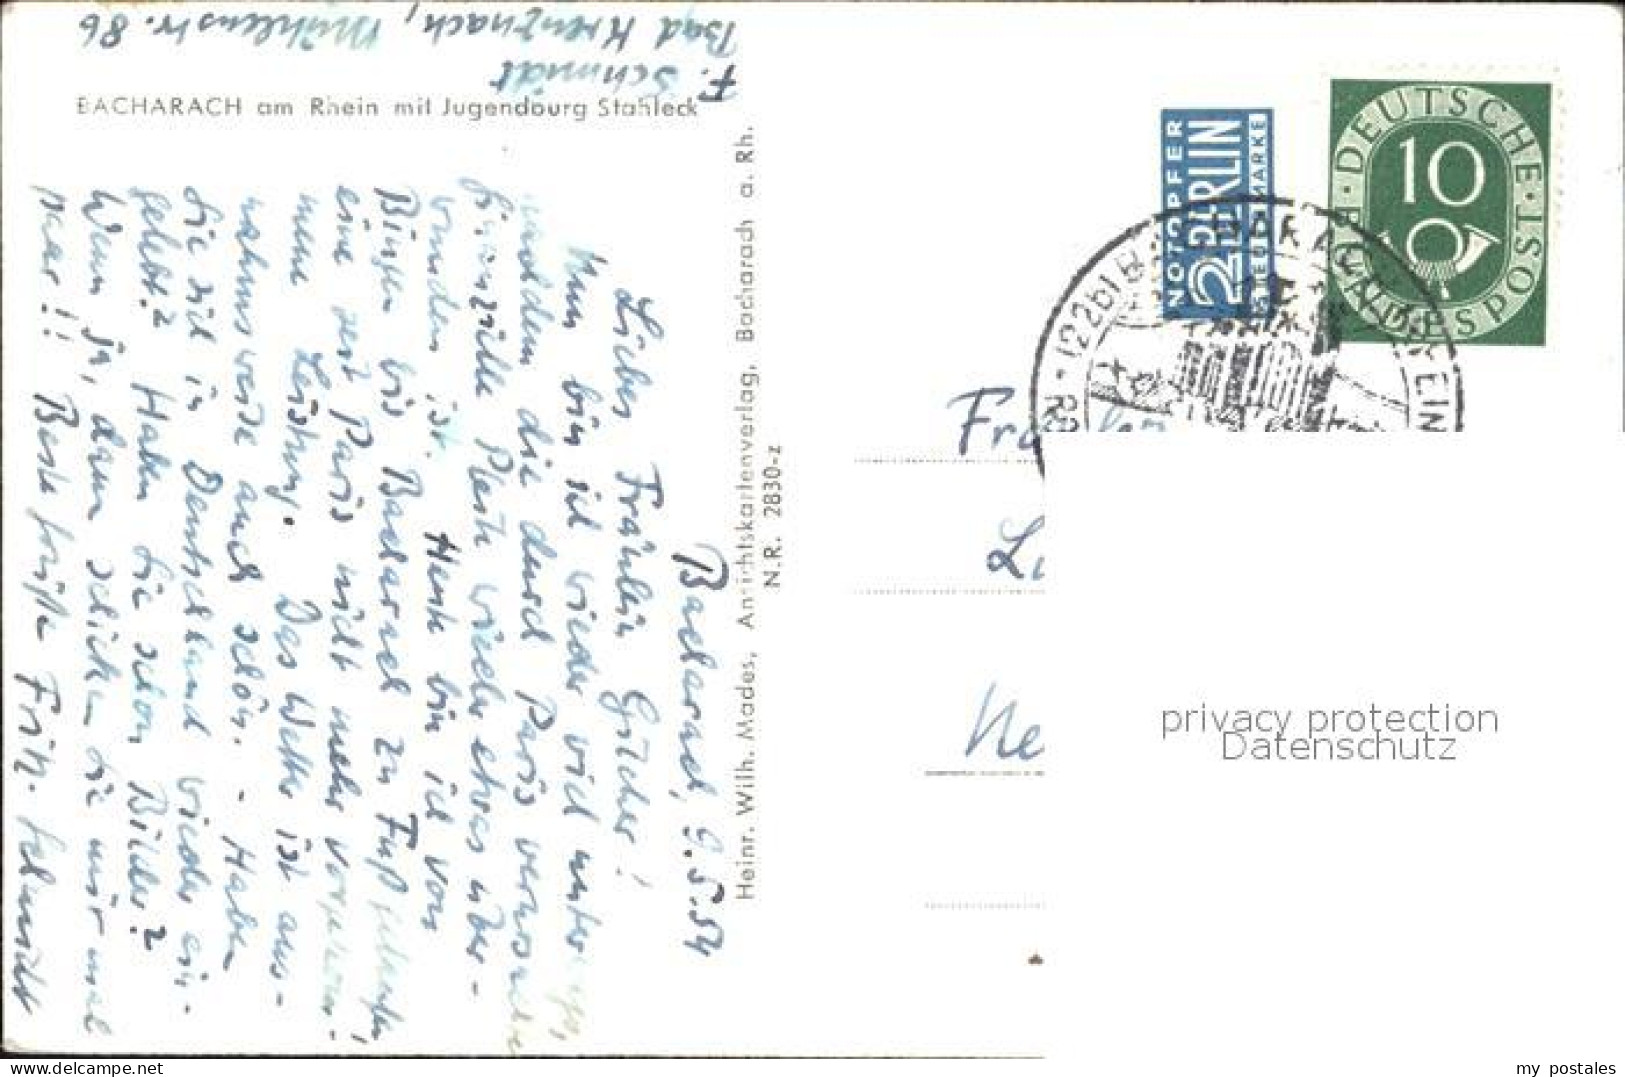 F. Schmidt
Bad Kreuznach, Mühlenstr. 86
BACHARACH am Rhein mit Jugendburg Stahleck
Bacharach, 9.5.54
Liebes Fräulein Gücher!
Nun bin ich wieder viel unterwegs,
nachdem die durch Paris verursachte
finanzielle Pleite wieder etwas über-
wunden ist. Heute bin ich von
Bingen bis Bacharach zu Fuß gelaufen,
eine seit Paris nicht mehr vorgekom-
mene Leistung. Das Wetter ist aus-
nahmsweise auch schön. - Haben
Sie sich in Deutschland wieder ein-
gelebt? Haben Sie schon Bilder?
Wenn ja, dann schicken Sie mir mal
paar!! Beste Grüße Fritz Schmidt
Heinr. Wilh. Mades, Ansichtskartenverlag, Bacharach a. Rh.
N.R. 2830-z
NOTOPFER
2 BERLIN
STEUERMARKE
DEUTSCHE BUNDESPOST
10
(22b) BACHARACH RHEIN
Fräulein
privacy protection
Datenschutz
my_postales